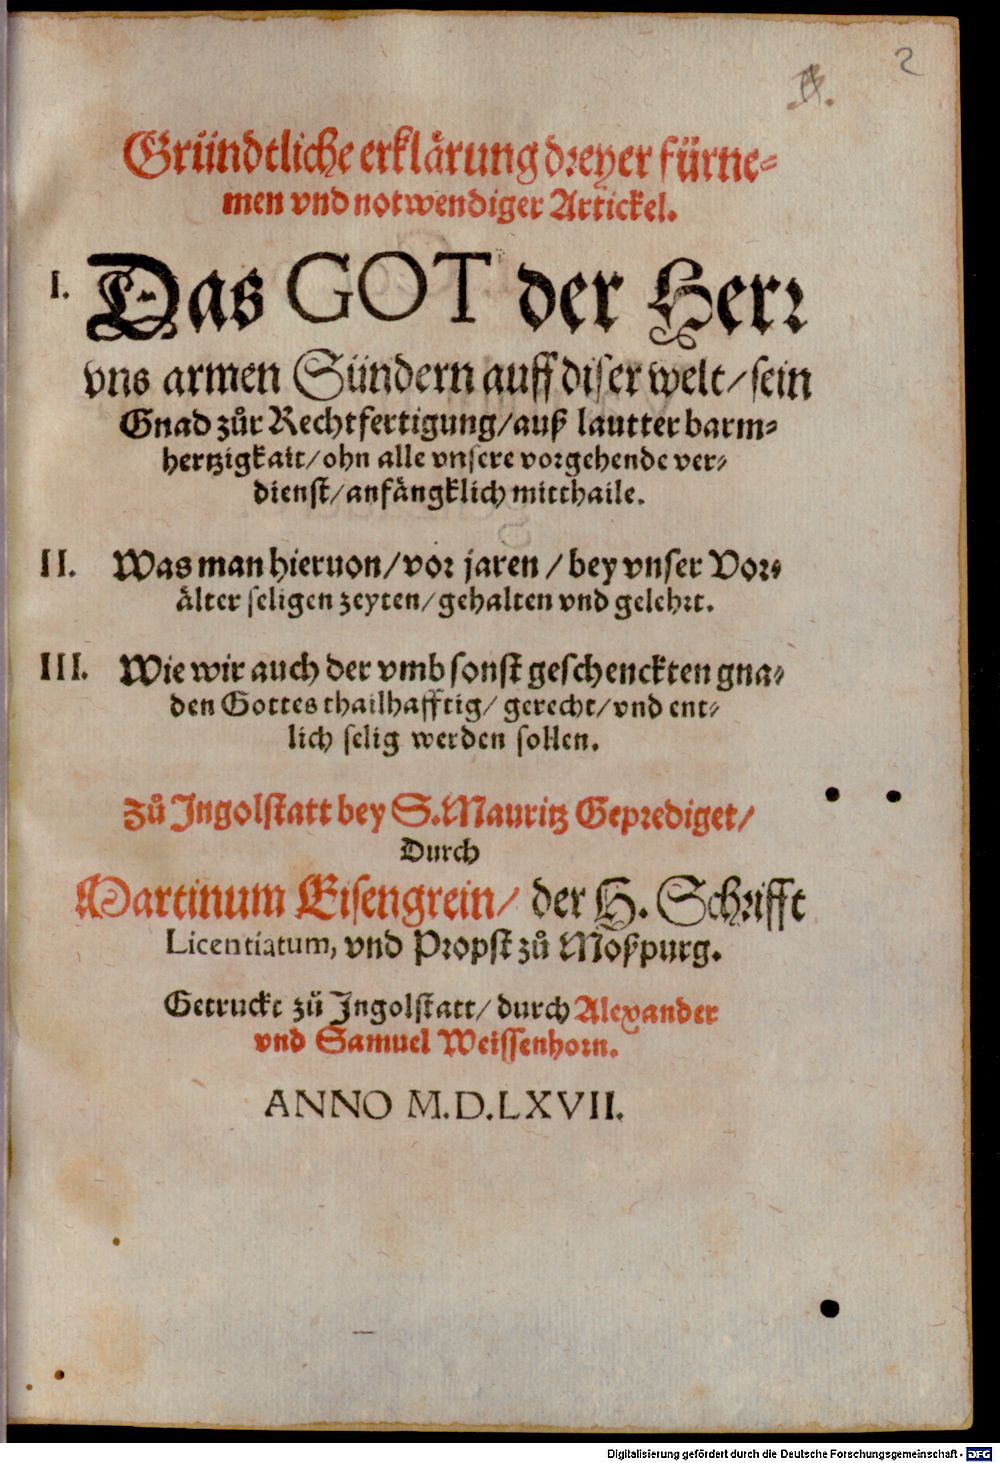 2
Gründtliche erklärung dreyer fürne-
men vnd notwendiger Artickel.
I. Das GOT der Herr
vns armen Sündern auff diser welt/ sein
Gnad zůr Rechtfertigung/ auß lautter barm-
hertzigkait/ ohn alle vnsere vorgehende ver-
dienst/ anfängklich mitthaile.
II. Was man hieruon/ vor jaren/ bey vnser Vor-
älter seligen zeyten/ gehalten vnd gelehrt.
III. Wie wir auch der vmb sonst geschenckten gna-
den Gottes thailhafftig/ gerecht/ vnd ent-
lich selig werden sollen.
Zů Ingolstatt bey S. Mauritz Geprediget/
Durch
Martinum Eisengrein/ der H. Schrifft
Licentiatum, vnd Propst zů Moßpurg.
Getruckt zů Ingolstatt/ durch Alexander
vnd Samuel Weissenhorn.
ANNO M.D.LXVII.
Digitalisierung gefördert durch die Deutsche Forschungsgemeinschaft - DFG